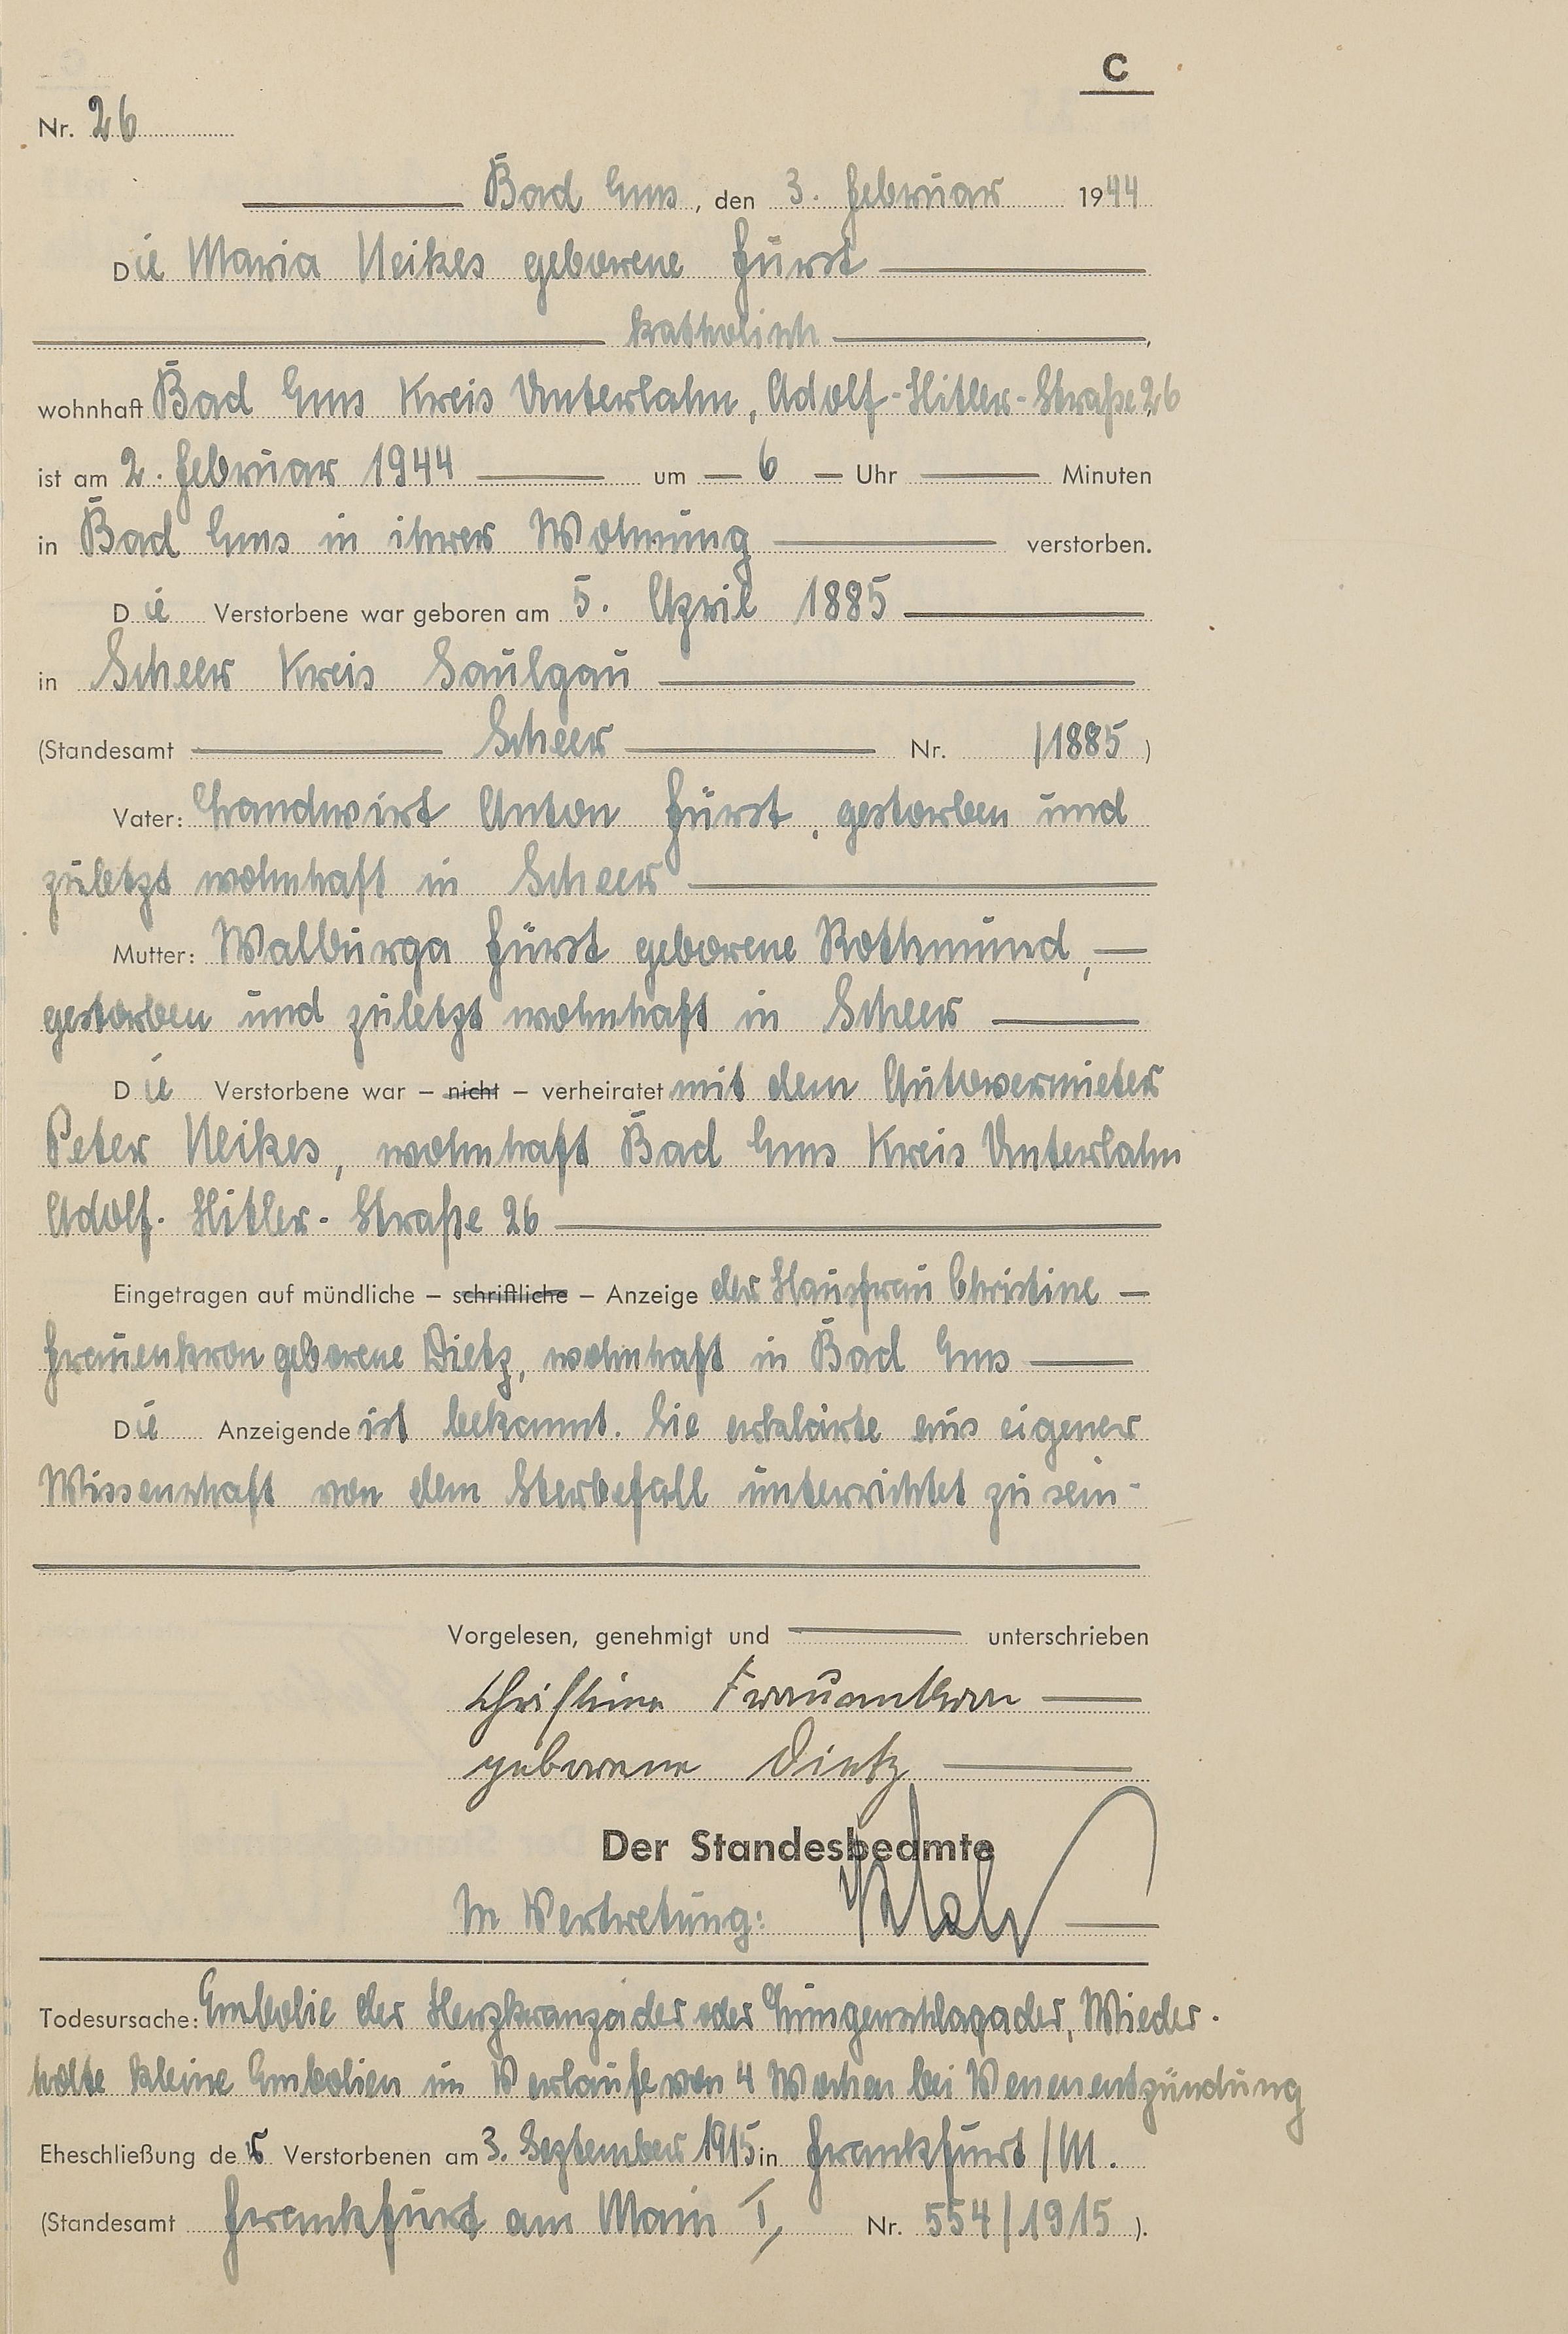 C
Nr. 26
Bad Ems, den 3. Februar 1944
Die Maria Neikes geborene Fürst
katholisch,
wohnhaft Bad Ems Kreis Unterlahn, Adolf-Hitler-Straße 26
ist am 2. Februar 1944 um 6 Uhr Minuten
in Bad Ems in ihrer Wohnung verstorben.
Die Verstorbene war geboren am 5. April 1885
in Scheer Kreis Saulgau
(Standesamt Scheer Nr. /1885)
Vater: Landwirt Anton Fürst, gestorben und
zuletzt wohnhaft in Scheer
Mutter: Walburga Fürst geborene Rothmund,
gestorben und zuletzt wohnhaft in Scheer
Die Verstorbene war – nicht – verheiratet mit dem Autovermieter
Peter Neikes, wohnhaft Bad Ems Kreis Unterlahn
Adolf-Hitler-Straße 26
Eingetragen auf mündliche – schriftliche – Anzeige der Hausfrau Christine
Frauenkron geborene Dietz, wohnhaft in Bad Ems
Die Anzeigende ist bekannt. Sie erklärte aus eigener
Wissenschaft von dem Sterbefall unterrichtet zu sein-
Vorgelesen, genehmigt und unterschrieben
Christine Frauenkron
geborene Dietz
Der Standesbeamte
In Vertretung:
Todesursache: Embolie der Herzkranzader oder Lungenschlagader, Wieder-
holte kleine Embolien im Verlaufe von 4 Wochen bei Venenentzündung
Eheschließung der Verstorbenen am 3. September 1915 in Frankfurt/M.
(Standesamt Frankfurt am Main I, Nr. 554/1915).